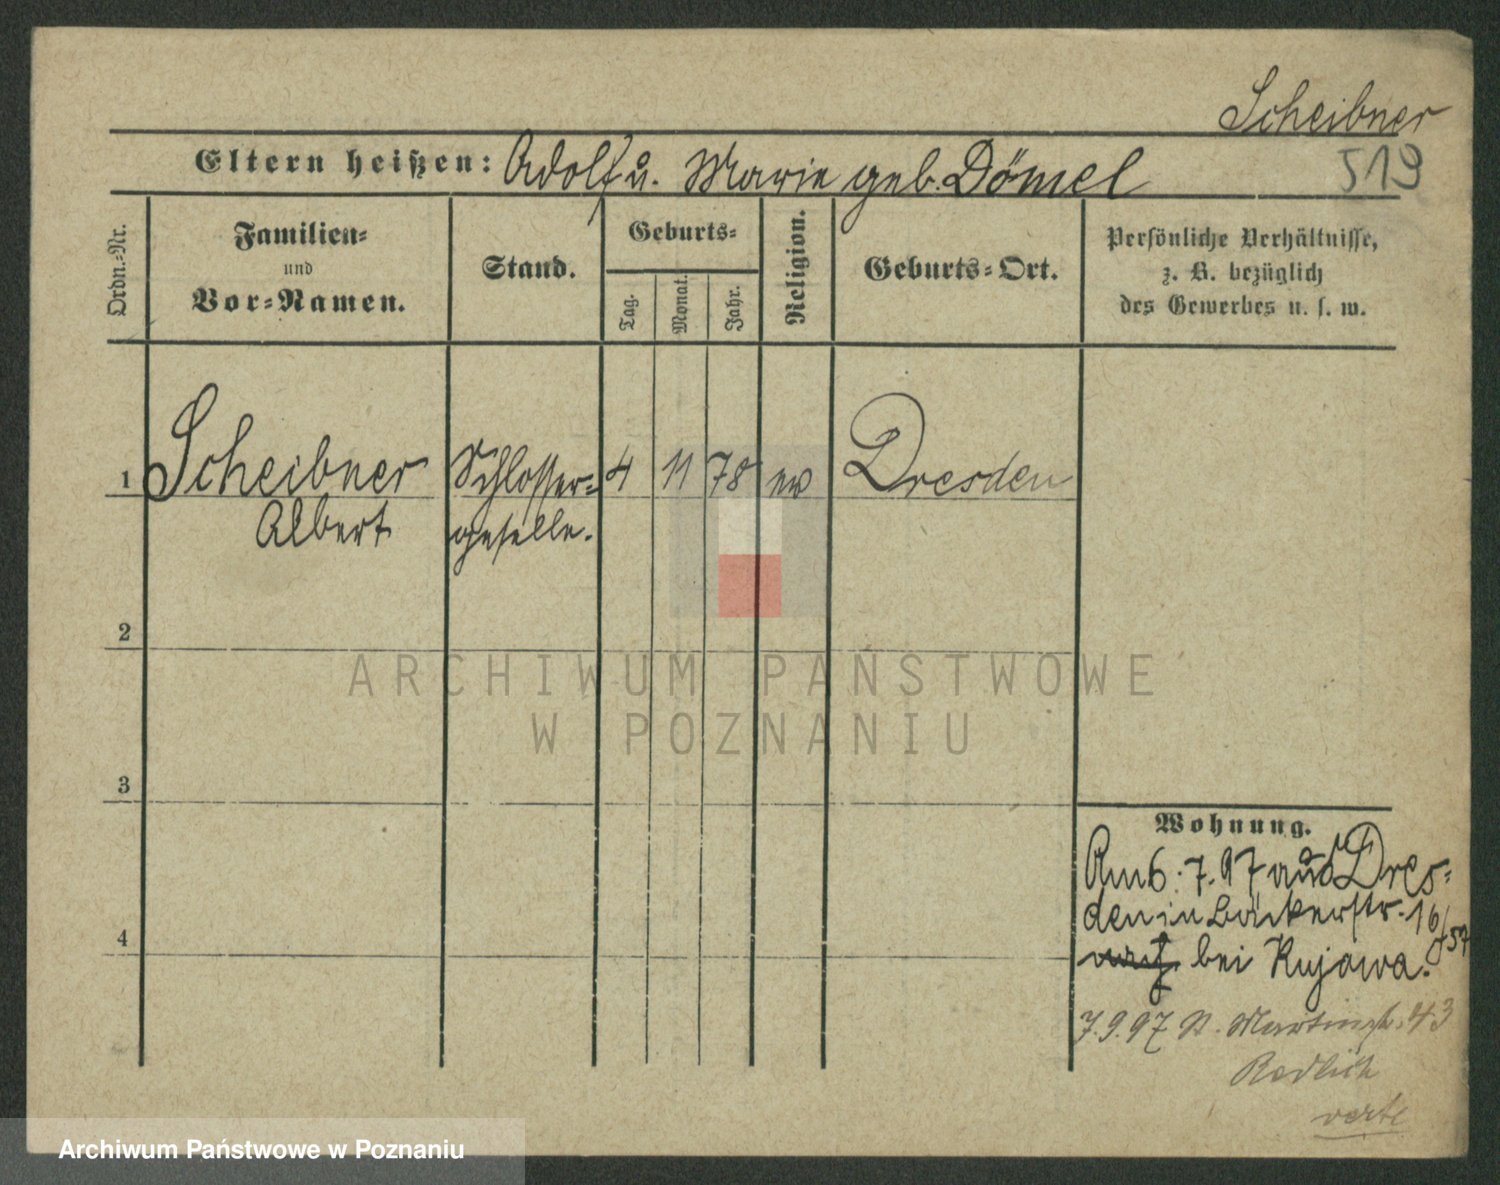 Scheibner
519
Eltern heißen: Adolf u. Marie geb. Dömel
Ordn.-Nr.
Familien-
und
Vor-Namen.
Stand.
Geburts-
Tag.
Monat.
Jahr.
Religion.
Geburts-Ort.
Persönliche Verhältnisse,
z. B. bezüglich
des Gewerbes u. s. w.
1 Scheibner Schlosser- 4 11 78 ev Dresden
Albert geselle.
2
ARCHIWUM PAŃSTWOWE
W POZNANIU
3
4
Wohnung.
Am 6. 7. 97 aus Dres-
den in Bäckerstr. 16/57
bei Kujawa.
7.9.97 St. Martinstr. 43
Redlich
verte
Archiwum Państwowe w Poznaniu